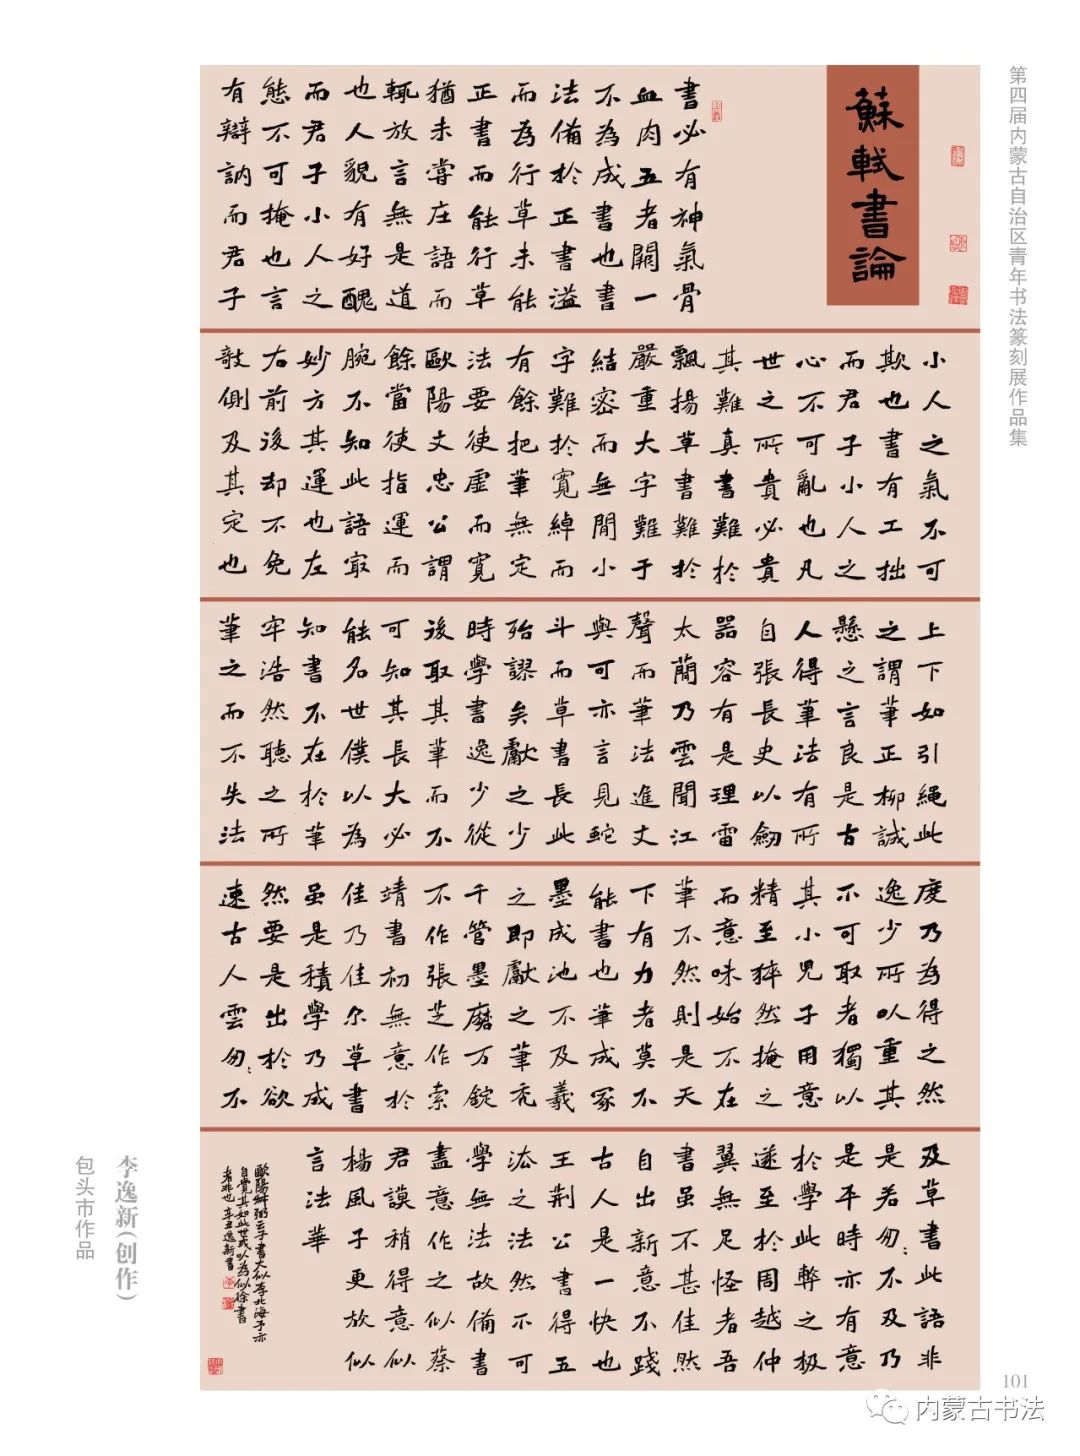 第四届内蒙古自治区青年书法篆刻展作品集
蘇軾書論
書必有神氣骨
血肉五者闕一
不為成書也書
法備於正書溢
而為行草未能
正書而能行草
猶未嘗庄語而
輒放言無是道
也人貌有好醜
而君子小人之
態不可掩也言
有辯訥而君子
小人之氣不可
欺也書有工拙
而君子小人之
心不可亂也凡
世之所貴必貴
其難真書難於
飄揚草書難於
嚴重大字難于
結密而無間小
字難於寬綽而
有餘把筆無定
法要使虛而寬
歐陽文忠公謂
餘當使指運而
腕不知此語最
妙方其運也左
右前後却不免
敧側及其定也
上下如引繩此
之謂筆正柳誠
懸之言良是古
人得筆法有所
自張長史以劒
器容有是理雷
太簡乃雲聞江
聲而筆法進文
與可亦言見蛇
斗而草書長此
殆謬矣獻之少
時學書逸少從
後取其筆而不
可知其長大必
能名世僕以為
知書不在於筆
牢浩然聽之所
筆之而不失法
度乃為得之然
逸少所以重其
不可取者獨以
其小兒子用意
精至猝然掩之
而意味始不在
筆不然則是天
下有力者莫不
能書也筆成冢
墨成池不及羲
之即獻之筆禿
千管墨磨万錠
不作張芝作索
靖書初無意於
佳乃佳尔草書
虽是積學乃成
然要是出於欲
速古人雲匆匆不
及草書此語非
是若匆匆不及乃
是平時亦有意
於學此弊之极
遂至於周越仲
翼無足怪者吾
書虽不甚佳然
自出新意不踐
古人是一快也
王荊公書得无
法之法然不可
學無法故備書
盡意作之似蔡
君謨稍得意似
楊風子更放似
言法華
歐陽叔弼云子書大似李北海予亦
自覺其如此世或以為似徐書
者非也 辛丑逸新書
李逸新（创作）
包头市作品
101
内蒙古书法